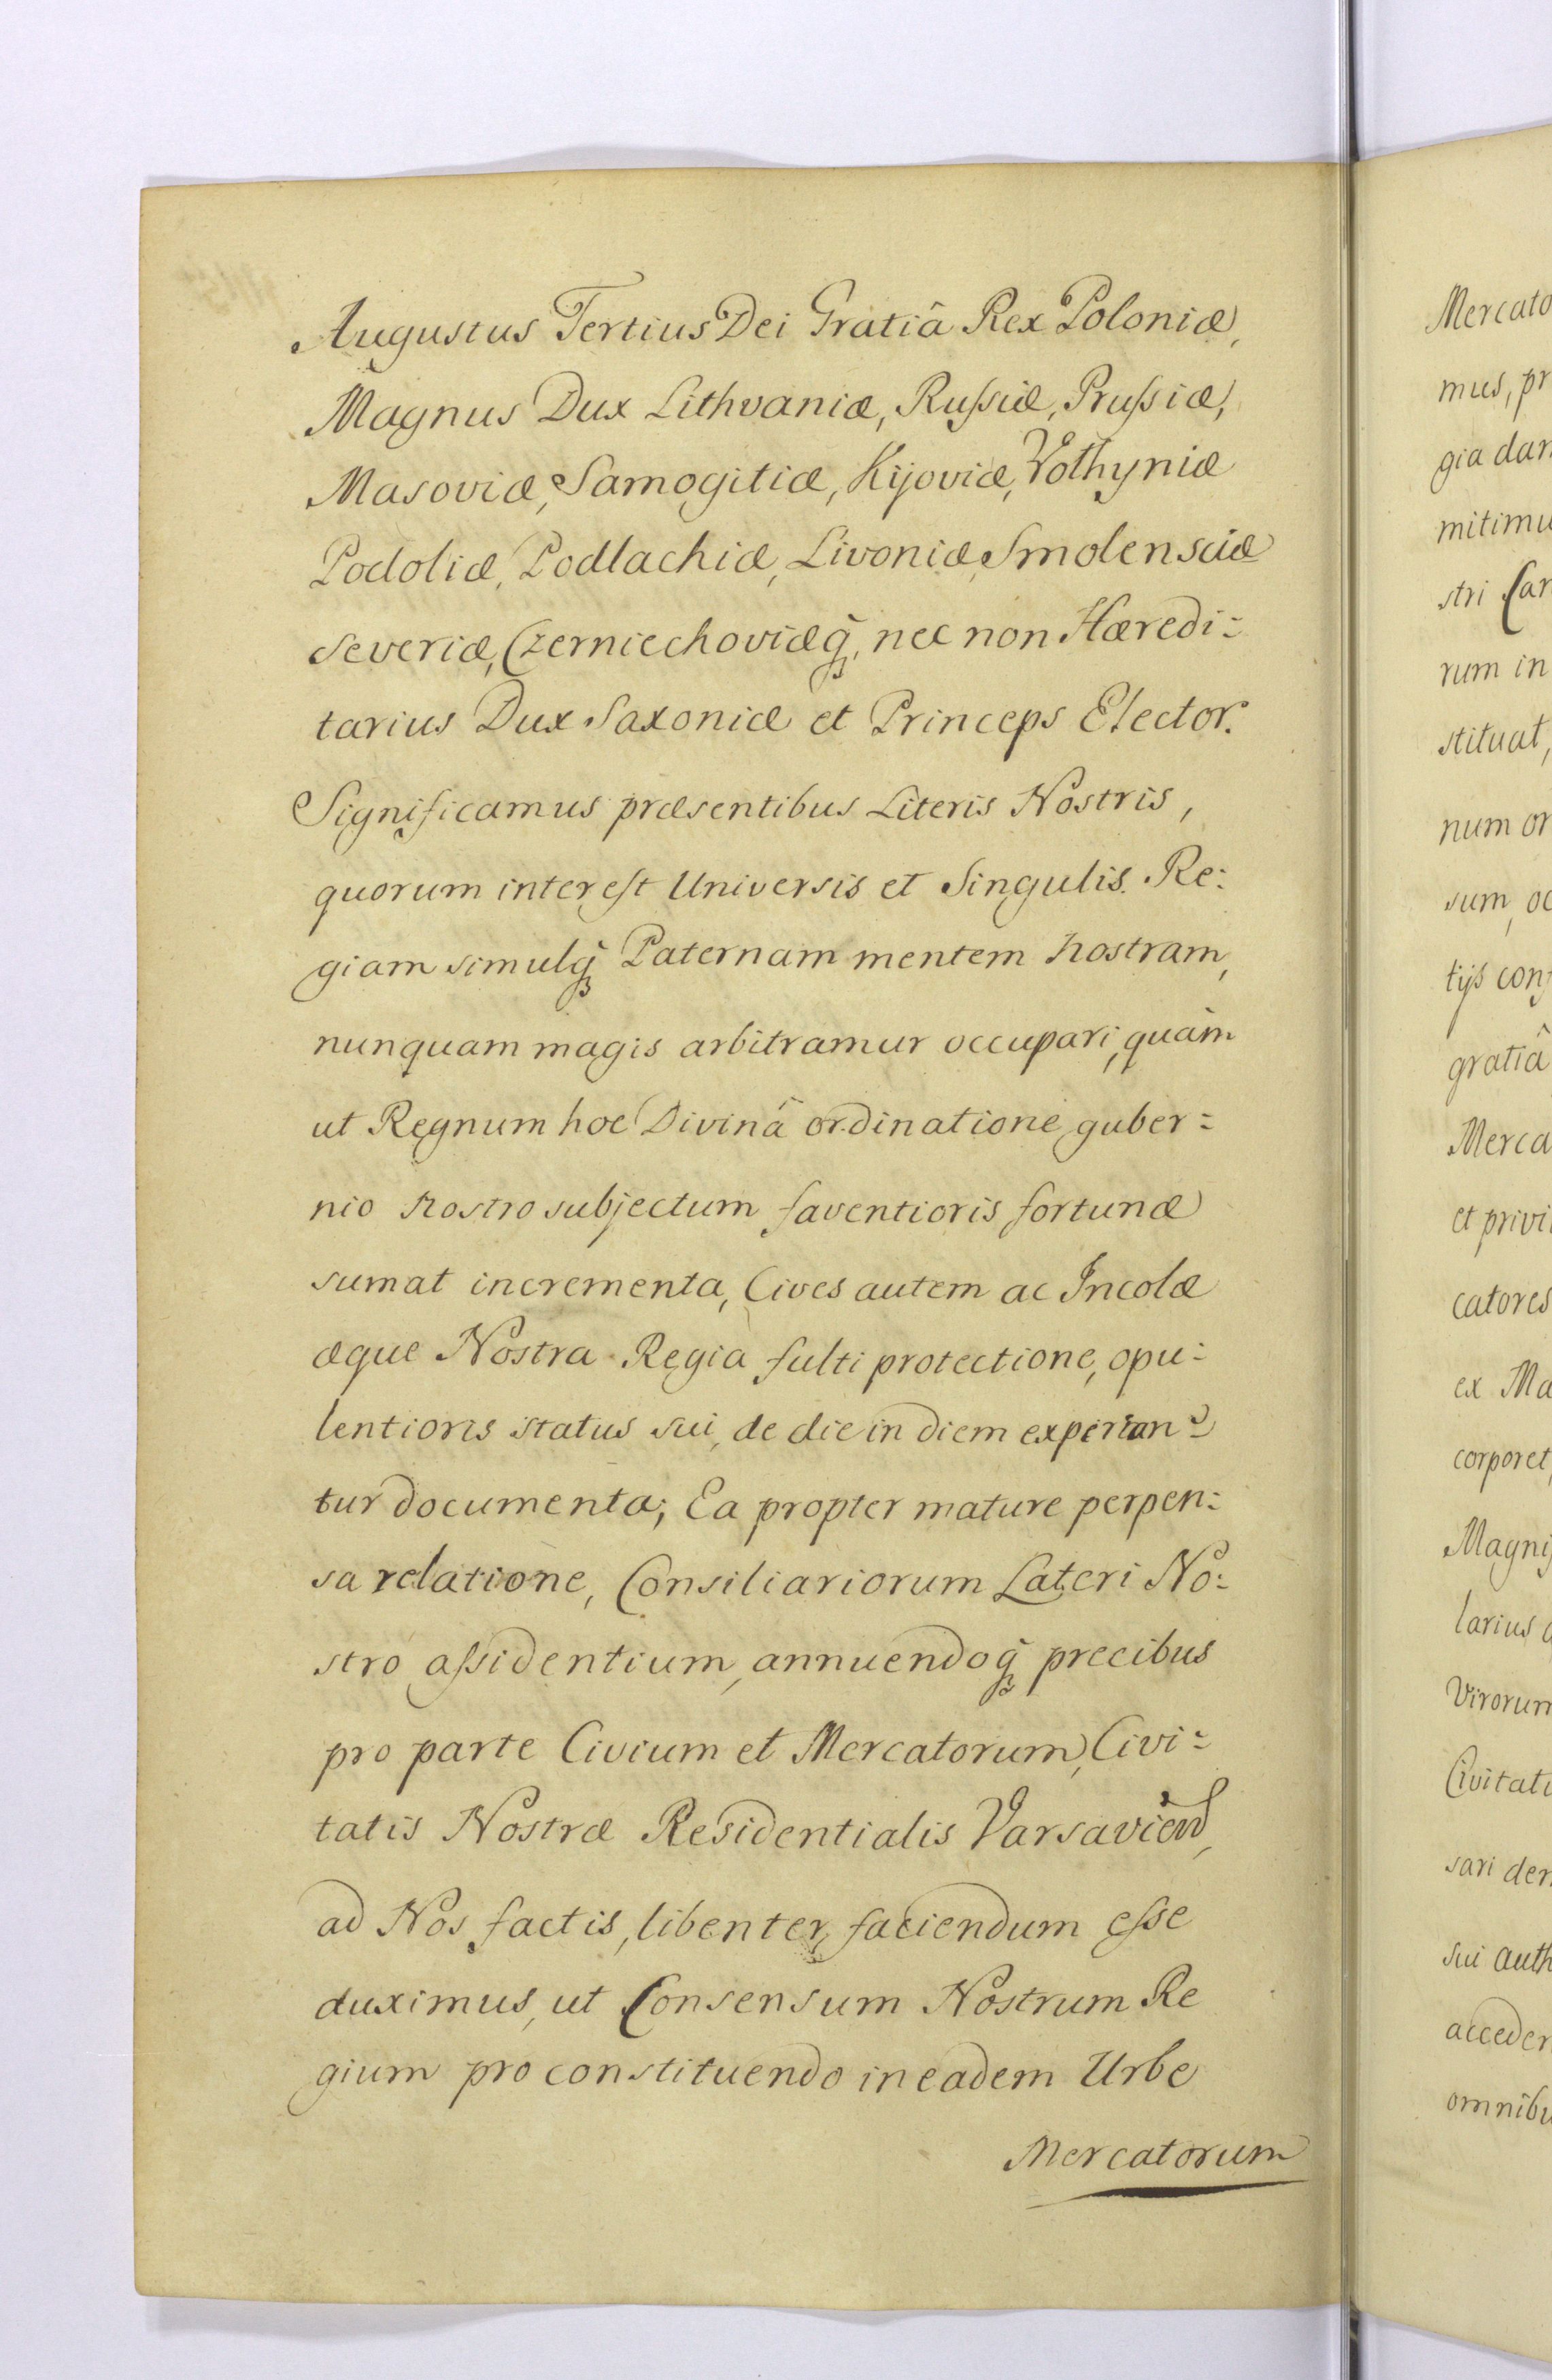 Augustus Tertius Dei Gratiâ Rex Poloniæ,
Magnus Dux Lithvaniæ, Russiæ, Prussiæ,
Masoviæ, Samogitiæ, Kijoviæ, Volhyniæ
Podoliæ, Podlachiæ, Livoniæ, Smolensciæ
Severiæ, Czerniechoviæq̃, nec non Hæredi=
tarius Dux Saxoniæ et Princeps Elector.
Significamus præsentibus Literis Nostris,
quorum interest Universis et Singulis. Re=
giam simulq̃ Paternam mentem nostram,
nunquam magis arbitramur occupari, quàm
ut Regnum hoc Divinâ ordinatione guber=
nio nostro subjectum faventioris fortunæ
sumat incrementa, Cives autem ac Incolæ
æque Nostra Regia fulti protectione, opu=
lentioris status sui, de die in diem experian=
tur documenta; Ea propter mature perpen=
sa relatione, Consiliariorum Lateri No=
stro assidentium, annuendoq̃ precibus
pro parte Civium et Mercatorum, Civi=
tatis Nostræ Residentialis Varsavien̄,
ad Nos factis, libenter faciendum esse
duximus, ut Consensum Nostrum Re
gium pro constituendo in eadem Urbe
Mercatorum
Mercato
mus, pr
gia dan
mitimu
stri Can
rum in
stituat,
num or
sum, oc
tijs conf
gratiâ
Merca
et privi
catores
ex Ma
corporet,
Magnif
larius
Virorum
Civitati
sari der
sui auth
acceder
omnibu